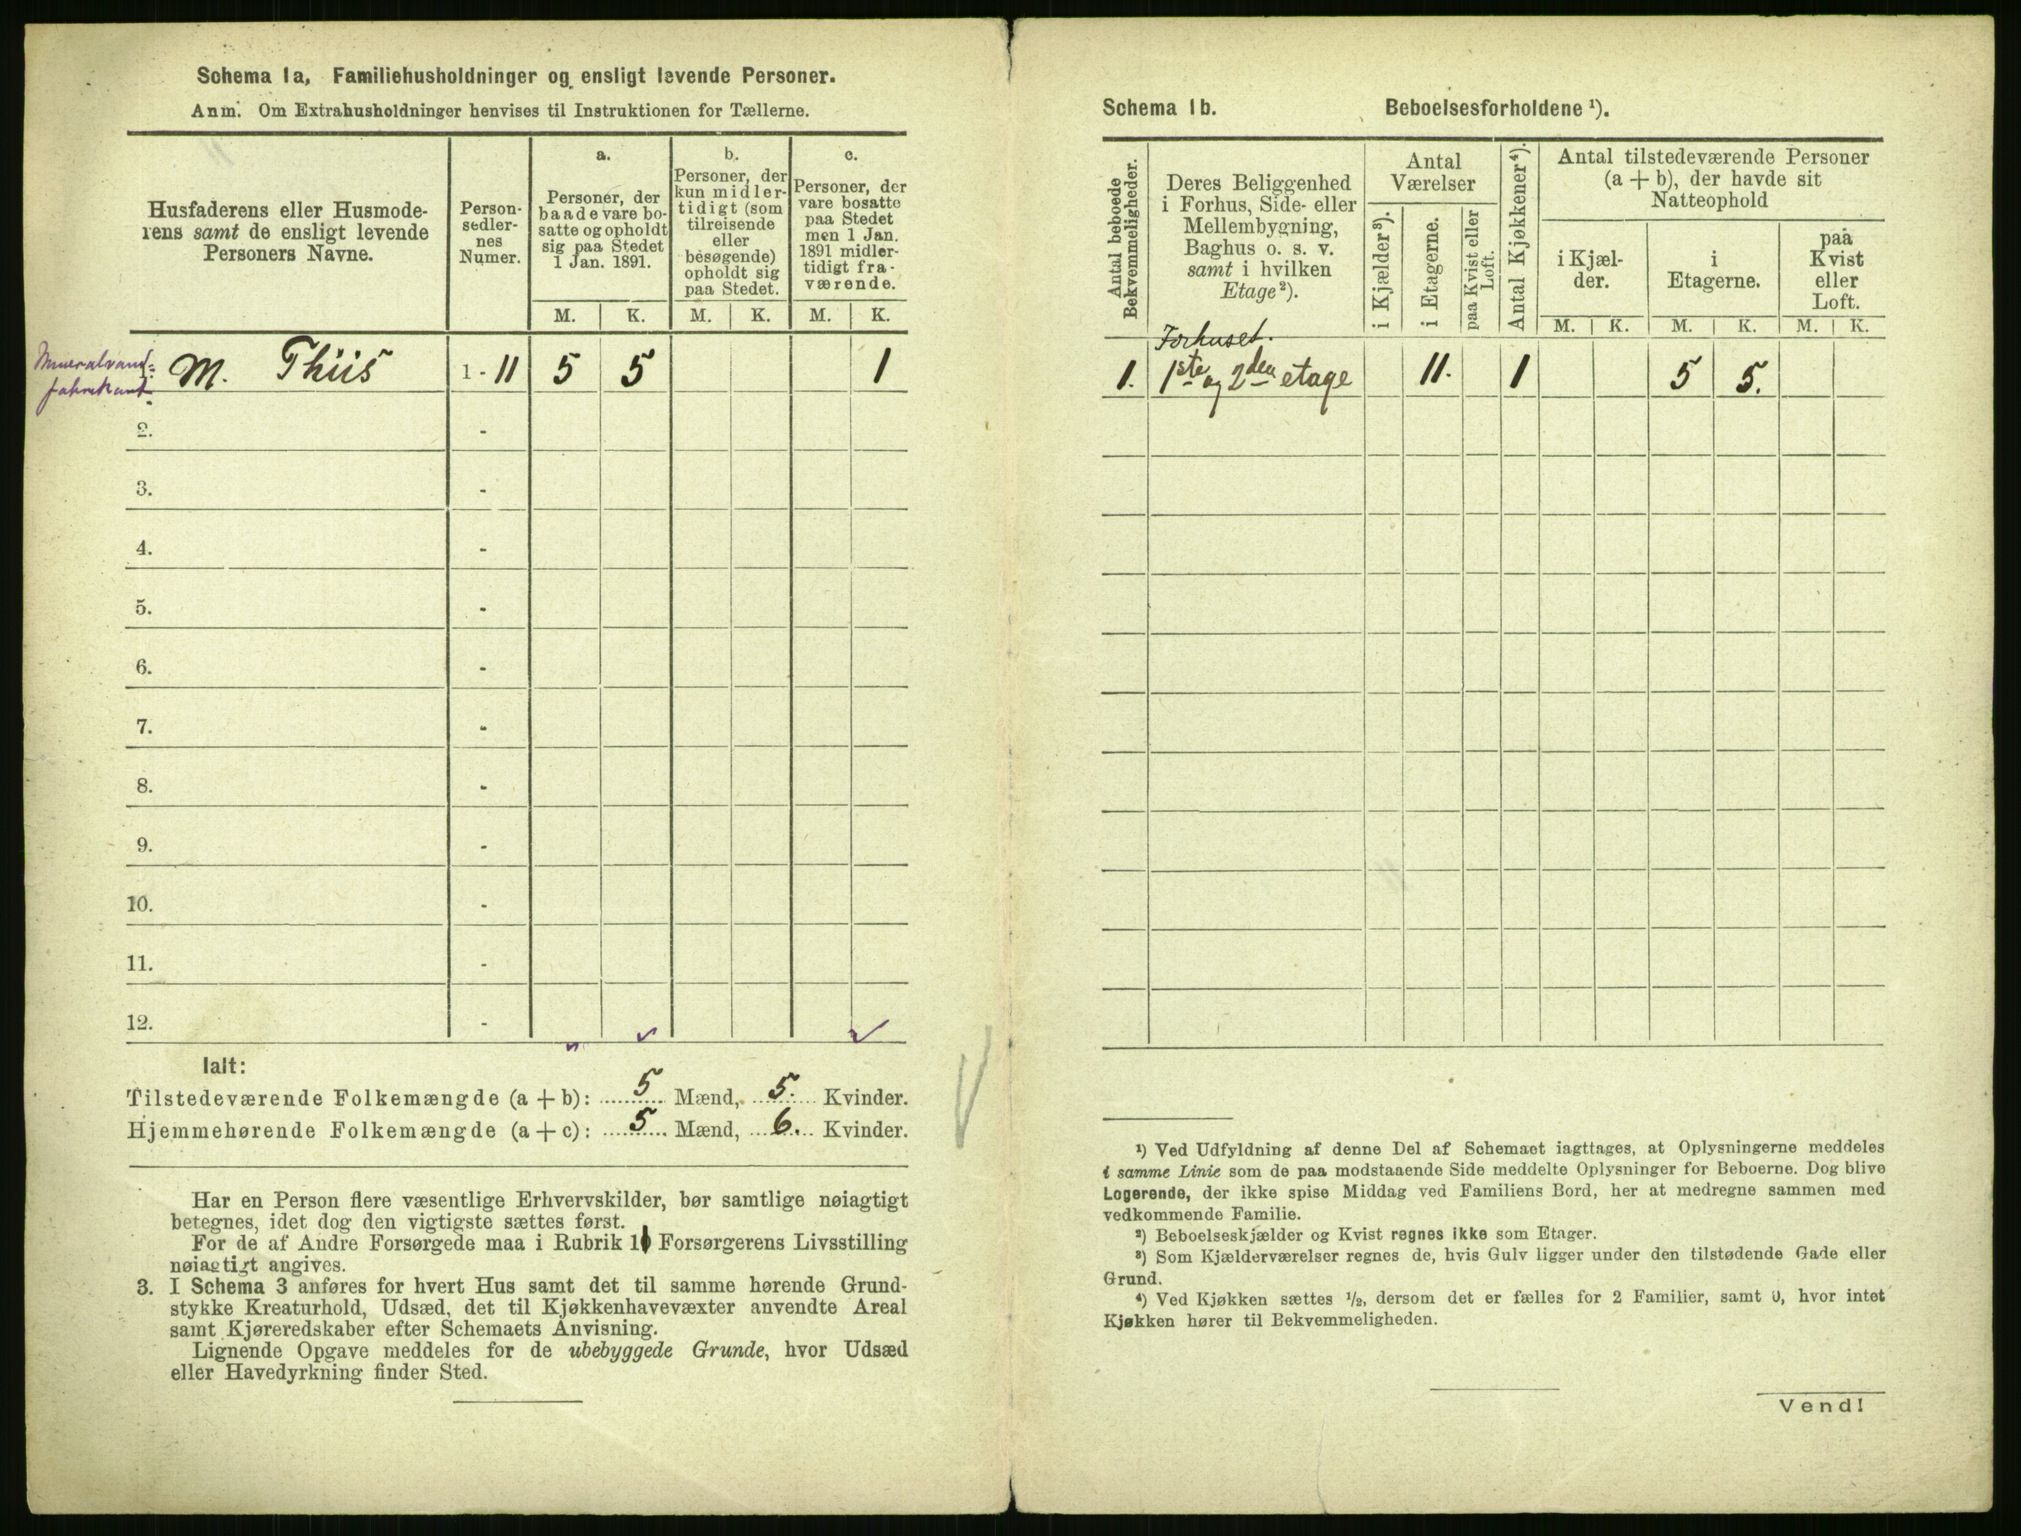 Schema 1a, Familiehusholdninger og ensligt levende Personer.
Anm. Om Extrahusholdninger henvises til Instruktionen for Tællerne.
Husfaderens eller Husmode-
rens samt de ensligt levende
Personers Navne.
Person-
sedler-
nes
Numer.
a.
Personer, der
baade vare bo-
satte og opholdt
sig paa Stedet
1 Jan. 1891.
b.
Personer, der
kun midler-
tidigt (som
tilreisende
eller
besøgende)
opholdt sig
paa Stedet.
c.
Personer, der
vare bosatte
paa Stedet
men 1 Jan.
1891 midler-
tidigt fra-
værende.
M. K. M. K. M. K.
Mineralvand=
fabrikant
1. M. Thiis 1 - 11 5 5 1
2. -
3. -
4. -
5. -
6. -
7. -
8. -
9. -
10. -
11. -
12. -
Ialt:
Tilstedeværende Folkemængde (a + b): 5 Mænd, 5. Kvinder.
Hjemmehørende Folkemængde (a + c): 5 Mænd, 6. Kvinder.
Har en Person flere væsentlige Erhvervskilder, bør samtlige nøiagtigt
betegnes, idet dog den vigtigste sættes først.
For de af Andre Forsørgede maa i Rubrik 10 Forsørgerens Livsstilling
nøiagtigt angives.
3. I Schema 3 anføres for hvert Hus samt det til samme hørende Grund-
stykke Kreaturhold, Udsæd, det til Kjøkkenhavevæxter anvendte Areal
samt Kjøreredskaber efter Schemaets Anvisning.
Lignende Opgave meddeles for de ubebyggede Grunde, hvor Udsæd
eller Havedyrkning finder Sted.
Schema 1b. Beboelsesforholdene ¹).
Antal beboede
Bekvemmeligheder.
Deres Beliggenhed
i Forhus, Side- eller
Mellembygning,
Baghus o. s. v.
samt i hvilken
Etage ²).
Antal
Værelser
i Kjælder ³).
i Etagerne.
paa Kvist eller
Loft.
Antal Kjøkkener ⁴).
Antal tilstedeværende Personer
(a + b), der havde sit
Natteophold
i Kjæl-
der.
i
Etagerne.
paa
Kvist
eller
Loft.
M. K. M. K. M. K.
Forhuset.
1. 1ste og 2den etage 11. 1 5 5.
¹) Ved Udfyldning af denne Del af Schemaet iagttages, at Oplysningerne meddeles
i samme Linie som de paa modstaaende Side meddelte Oplysninger for Beboerne. Dog blive
Logerende, der ikke spise Middag ved Familiens Bord, her at medregne sammen med
vedkommende Familie.
²) Beboelseskjælder og Kvist regnes ikke som Etager.
³) Som Kjælderværelser regnes de, hvis Gulv ligger under den tilstødende Gade eller
Grund.
⁴) Ved Kjøkken sættes ½, dersom det er fælles for 2 Familier, samt 0, hvor intet
Kjøkken hører til Bekvemmeligheden.
Vend!